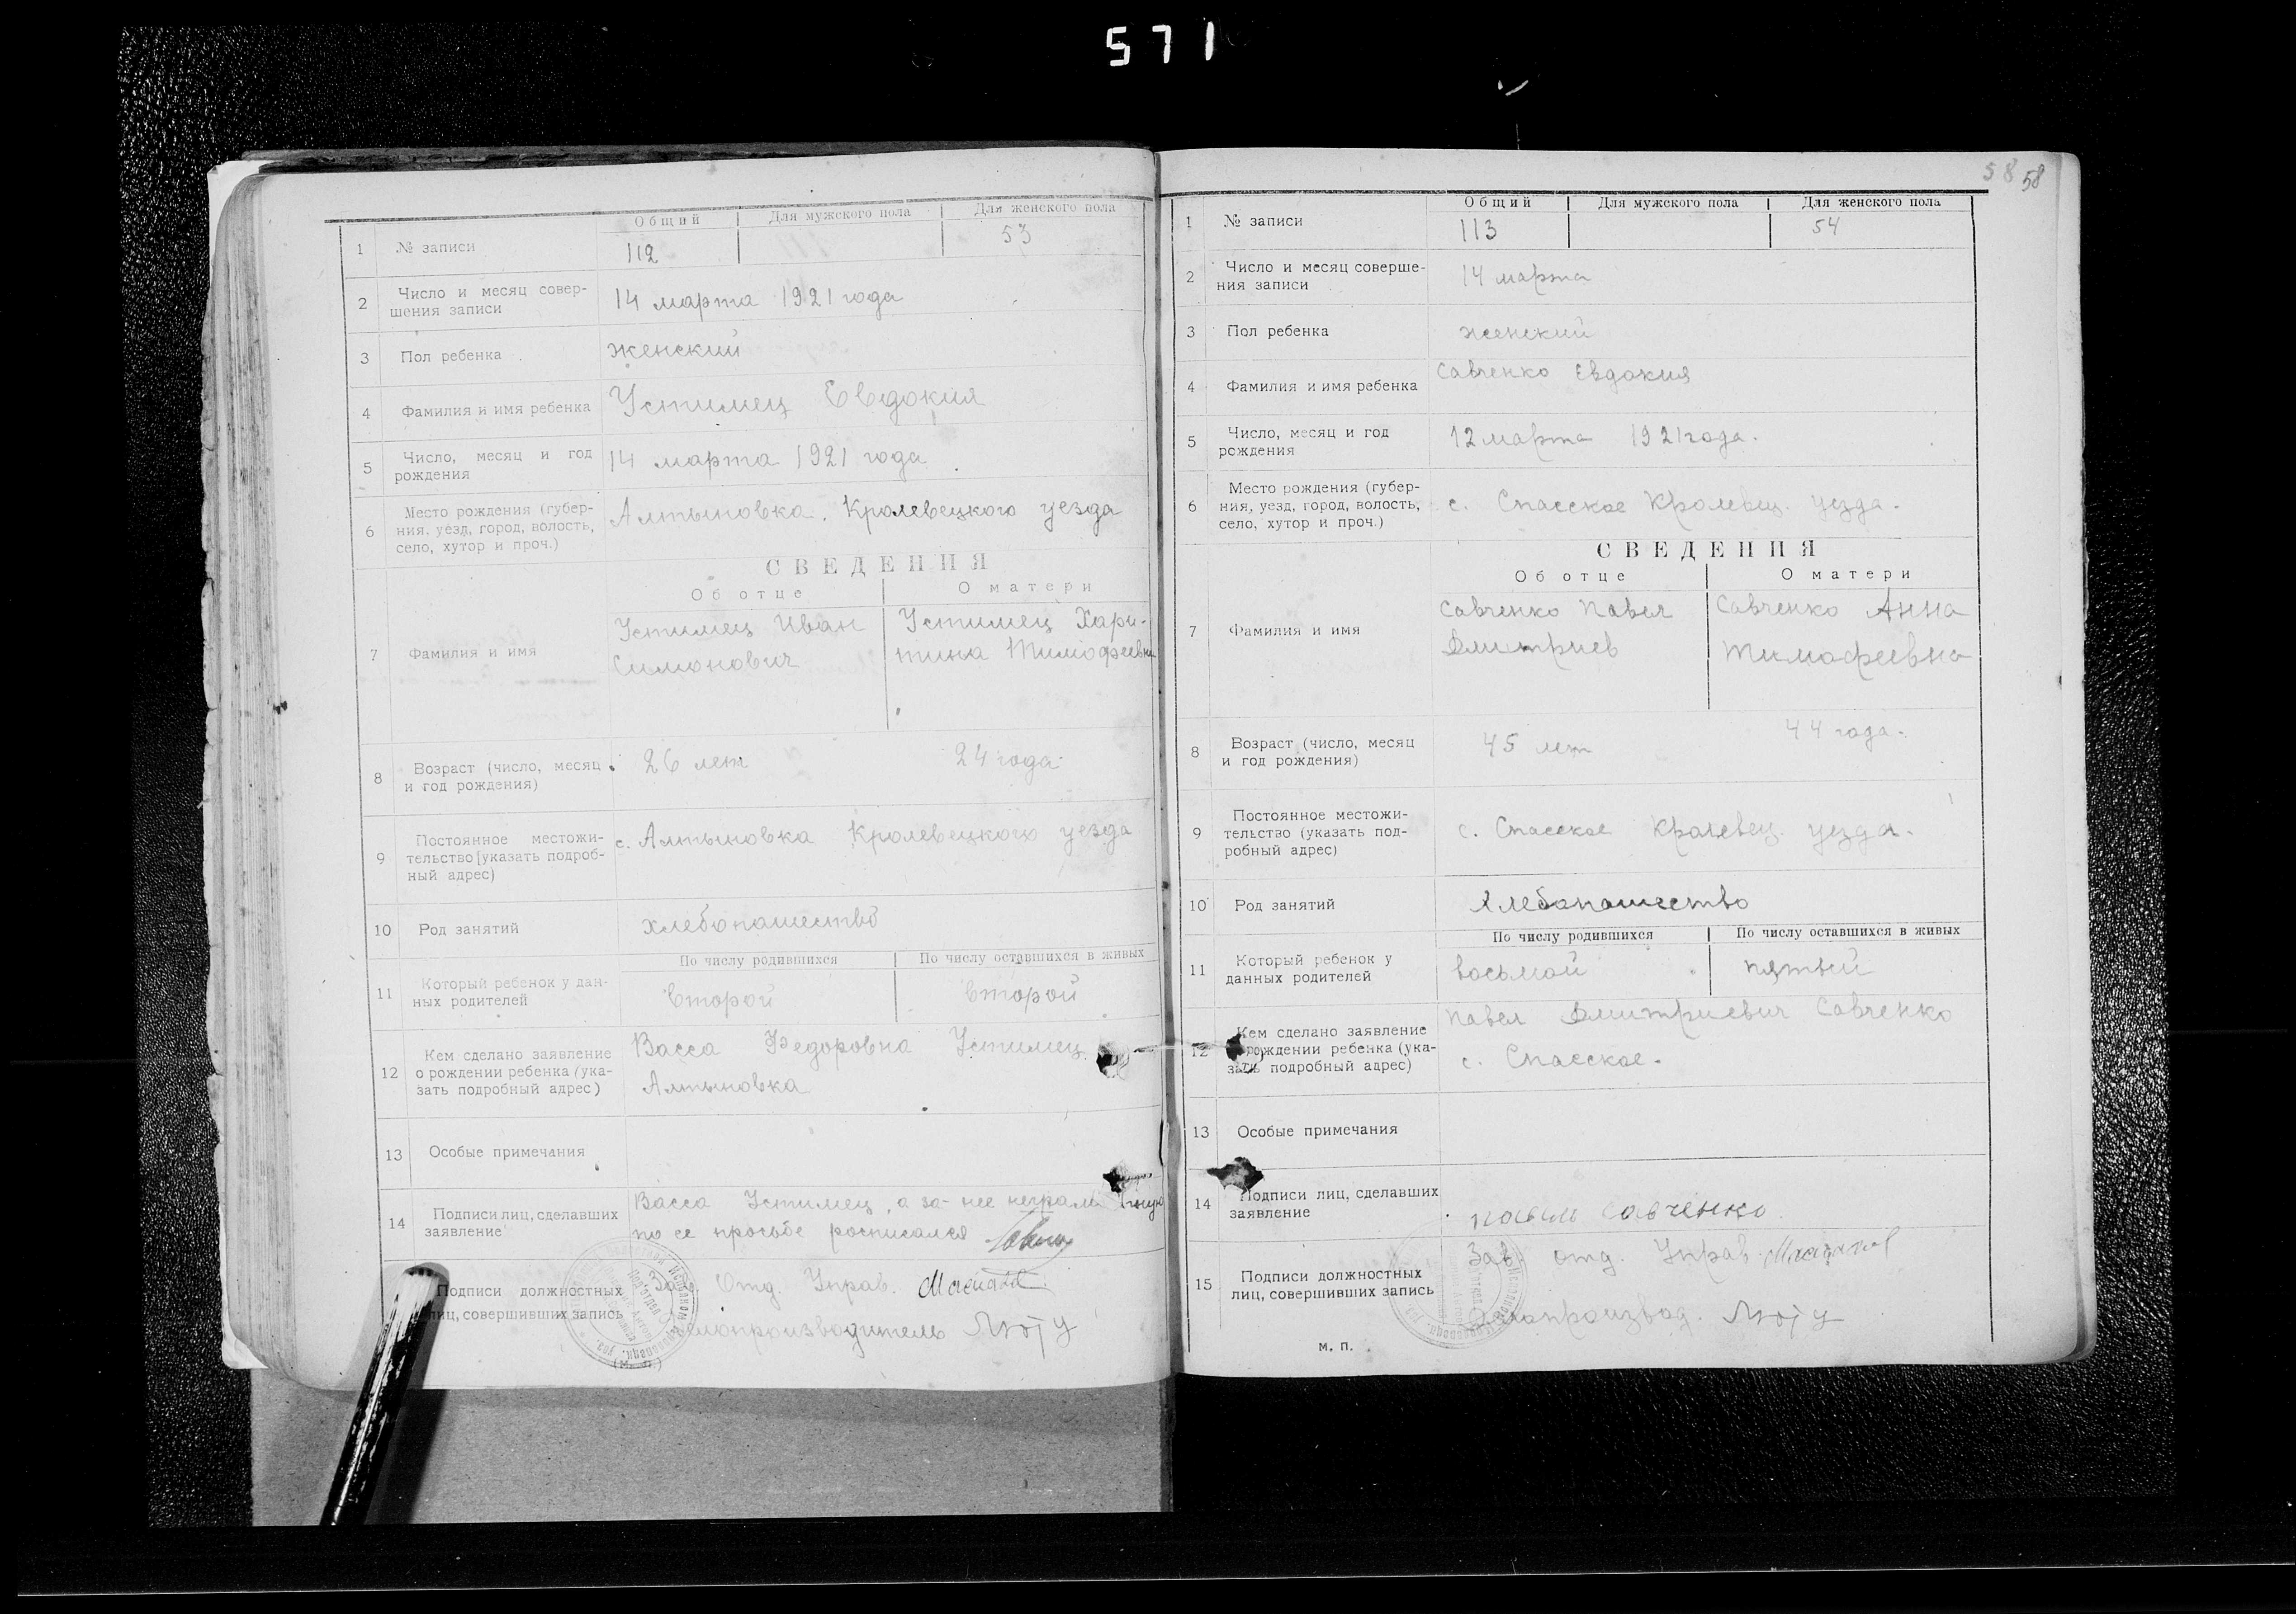 571
Общий Для мужского пола Для женского пола
1 № записи 112 53
2 Число и месяц совер-
шения записи 14 марта 1921 года
3 Пол ребенка женский
4 Фамилия и имя ребенка Устимец Евдокия
5 Число, месяц и год
рождения 14 марта 1921 года
6 Место рождения (губер-
ния, уезд, город, волость, Алтыновка. Кролевецкого уезда
село, хутор и проч.)
СВЕДЕНИЯ
Об отце О матери
7 Фамилия и имя Устимец Иван Устимец Хари-
Симонович тина Тимофеевна
8 Возраст (число, месяц 26 лет 24 года
и год рождения)
9 Постоянное местожи- с. Алтыновка Кролевецкого уезда
тельство [указать подроб-
ный адрес)
10 Род занятий хлебопашество
По числу родившихся По числу оставшихся в живых
11 Который ребенок у дан-
ных родителей второй второй
12 Кем сделано заявление Васса Федоровна Устимец
о рождении ребенка (ука-
зать подробный адрес) Алтыновка
13 Особые примечания
14 Подписи лиц, сделавших Васса Устимец, а за-нее
заявление по ее просьбе росписался
Подписи должностных Зав. Отд. Управ.
лиц, совершивших запись Делопроизводитель
(м. п.)
58 58
Общий Для мужского пола Для женского пола
1 № записи 113 54
2 Число и месяц соверше-
ния записи 14 марта
3 Пол ребенка женский
4 Фамилия и имя ребенка Савченко Евдокия
5 Число, месяц и год
рождения 12 марта 1921 года.
6 Место рождения (губер-
ния, уезд, город, волость, с. Спасское Кролевец. уезда.
село, хутор и проч.)
СВЕДЕНИЯ
Об отце О матери
7 Фамилия и имя Савченко Павел Савченко Анна
Дмитриев Тимофеевна
8 Возраст (число, месяц 45 лет 44 года.
и год рождения)
9 Постоянное местожи-
тельство (указать под- с. Спасское Кролевец. уезда.
робный адрес)
10 Род занятий Хлебопашество
По числу родившихся По числу оставшихся в живых
11 Который ребенок у
данных родителей восьмой пятый
12 Кем сделано заявление Павел Дмитриевич Савченко
о рождении ребенка (ука-
зать подробный адрес) с. Спасское.
13 Особые примечания
14 Подписи лиц, сделавших
заявление павель савченко
15 Подписи должностных Зав. отд. Управ.
лиц, совершивших запись Делопроизвод.
м. п.